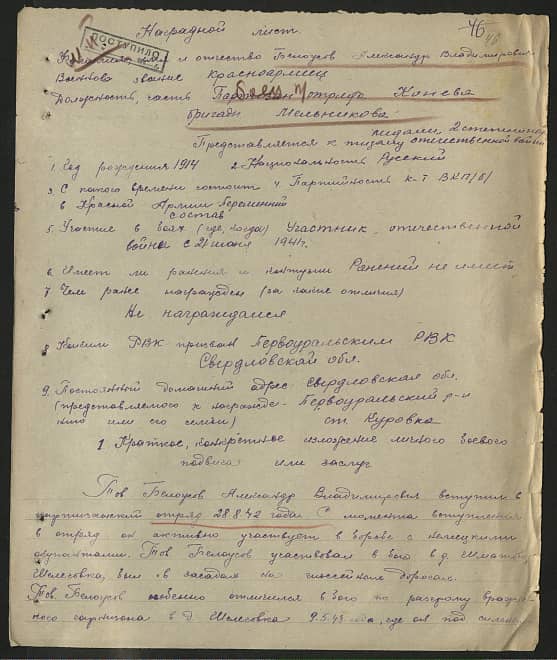 46
46
Наградной лист.
ПОСТУПИЛО
имя и отчество Белоусов Александр Владимирович
Военное звание Красноармеец
Должность, часть Партизан отряда Кинева
боец
бригады Мельникова
медали 2 степени
Представляется к Отечественной войны
1. Год рождения 1914 2. Национальность Русский
3. С какого времени состоит 4 Партийность к-т ВКП/б/
в Красной Армии
состав
5. Участие в боях (где, когда) Участник отечественной
войны с июня 1941г.
6 Имеет ли ранения и контузии Ранений не имеет
7. Чем ранее награжден (за какие отличия)
Не награждался
8 Каким РВК призван Первоуральским РВК
Свердловской обл.
9. Постоянный домашний адрес Свердловская обл.
(представляемого к награжде- Первоуральский р-н
нию или его семьи) ст. Куровка
1. Краткое, конкретное изложение личного боевого
подвига или заслуг
Тов Белоусов Александр Владимирович вступил в
партизанский отряд 28.8.42 года. С момента вступления
в отряд он активно участвует в борьбе с немецкими
оккупантами. Тов Белоусов участвовал в бою в д.
Шелеговка, был в засадах на шоссейных дорогах.
Тов Белоусов особенно отличился в бою по разгрому
ного гарнизона в д Шелеговка 9.5.43 года, где он под